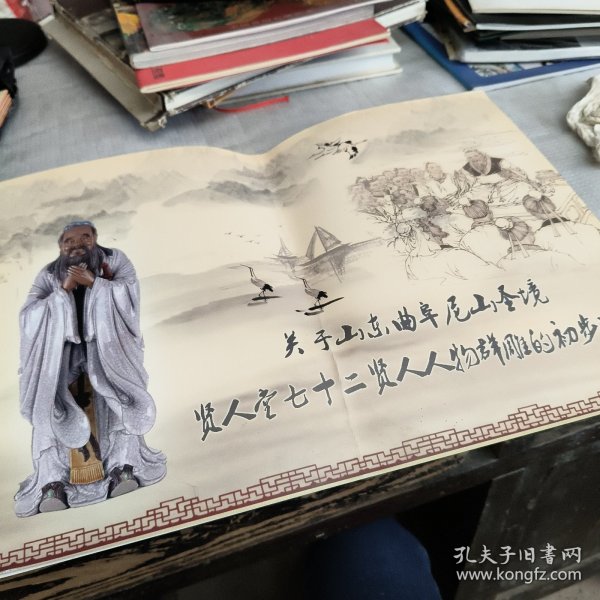 关于山东曲阜尼山圣境
贤人堂七十二贤人人物群雕的初步
孔夫子旧書网
www.kongfz.com